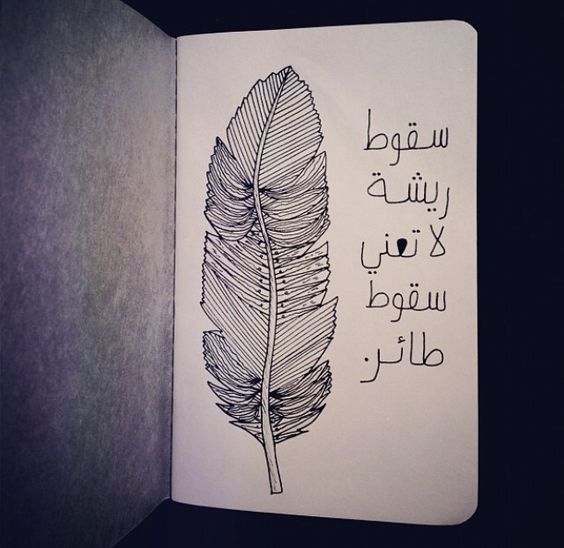 سقوط
ريشة
لا تعني
سقوط
طائر.